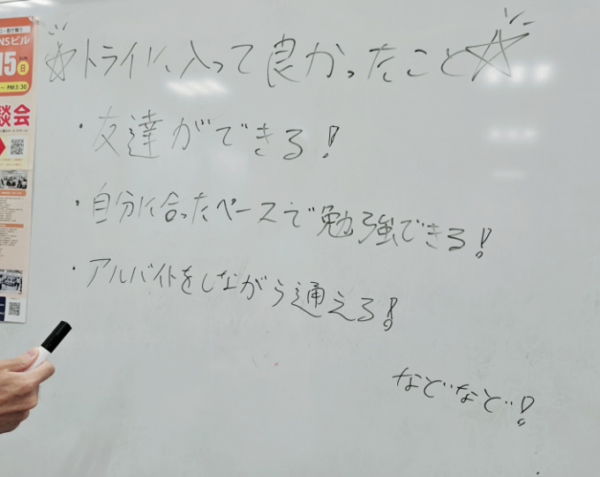 NSビル
15
日
PM3:30
談会
☆トライに入って良かったこと☆
・友達ができる!
・自分に合ったペースで勉強できる!
・アルバイトをしながら通える!
などなど!